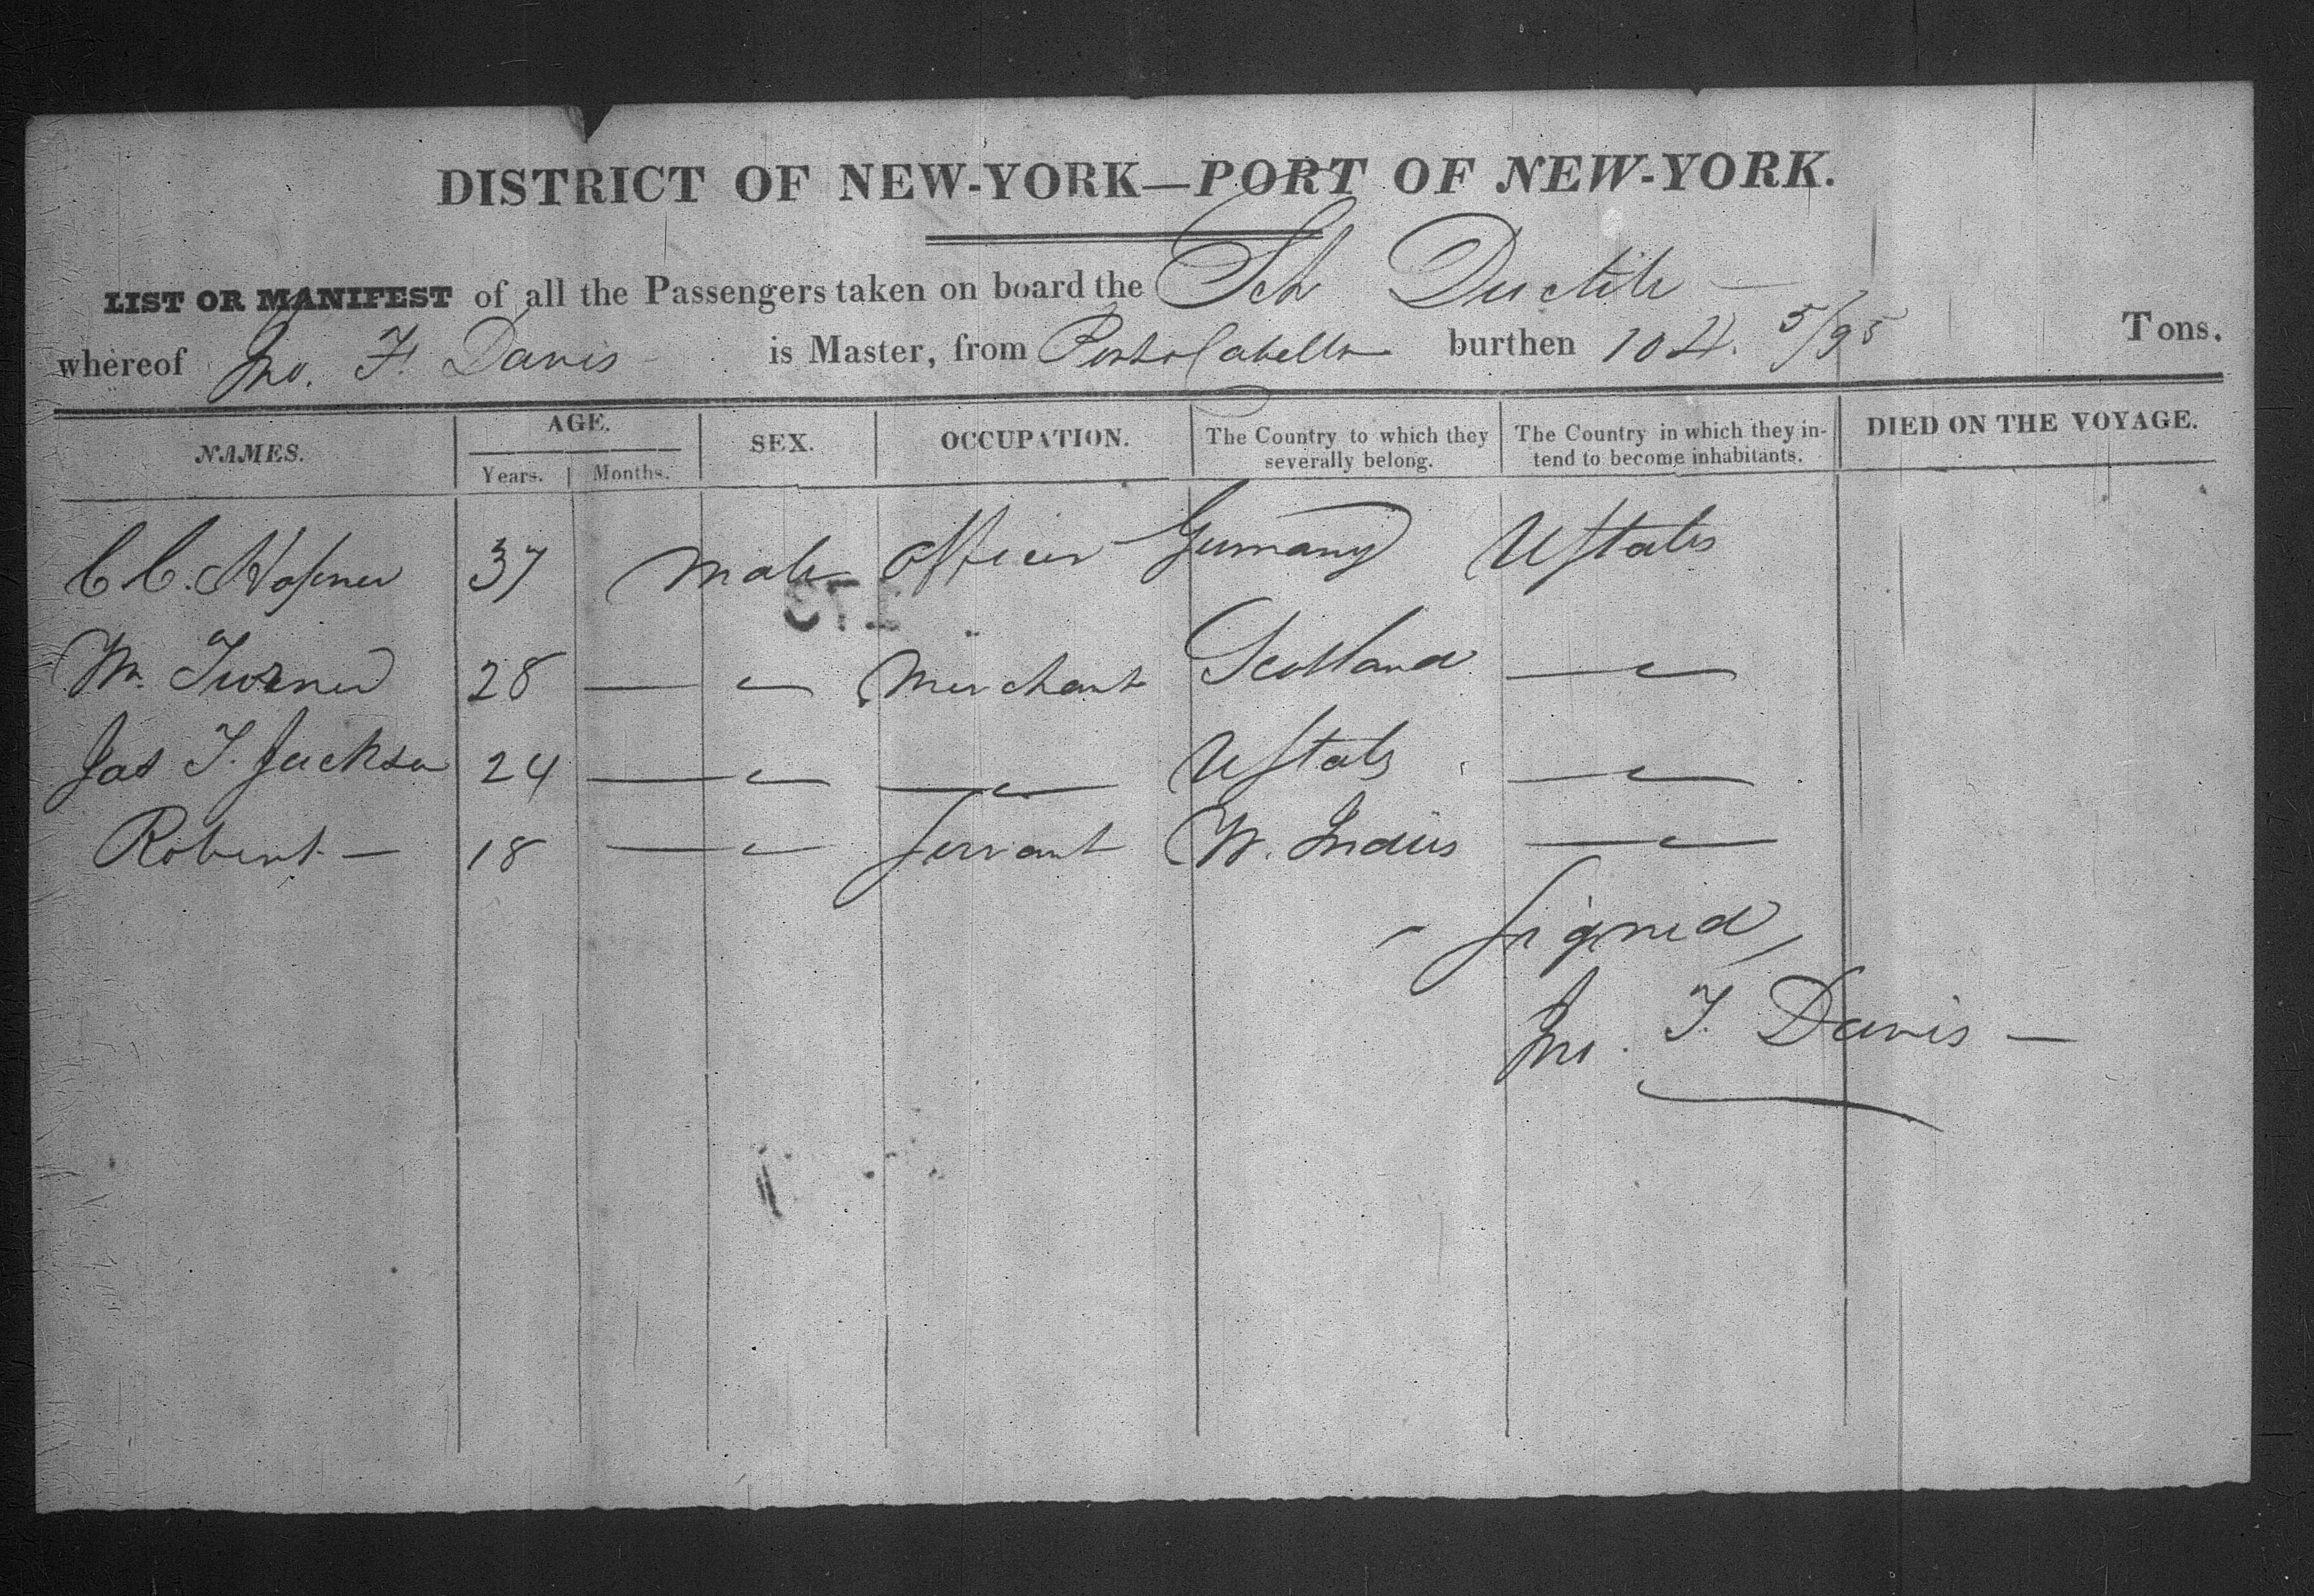 DISTRICT OF NEW-YORK—PORT OF NEW-YORK.
LIST OR MANIFEST of all the Passengers taken on board the Sch Ductile —
whereof Jno. F. Davis is Master, from Porto Cabello burthen 104. 5/95 Tons.
NAMES. AGE. Years. Months. SEX. OCCUPATION. The Country to which they severally belong. The Country in which they intend to become inhabitants. DIED ON THE VOYAGE.
C C. 37 Male Officer Germany UStates
Wm. Turner 28 — " Merchant Scotland — "
Jas T. Jackson 24 — " — " UStates — "
Robert — 18 — " Servant W. Indies — "
Signed,
Jno. F. Davis —